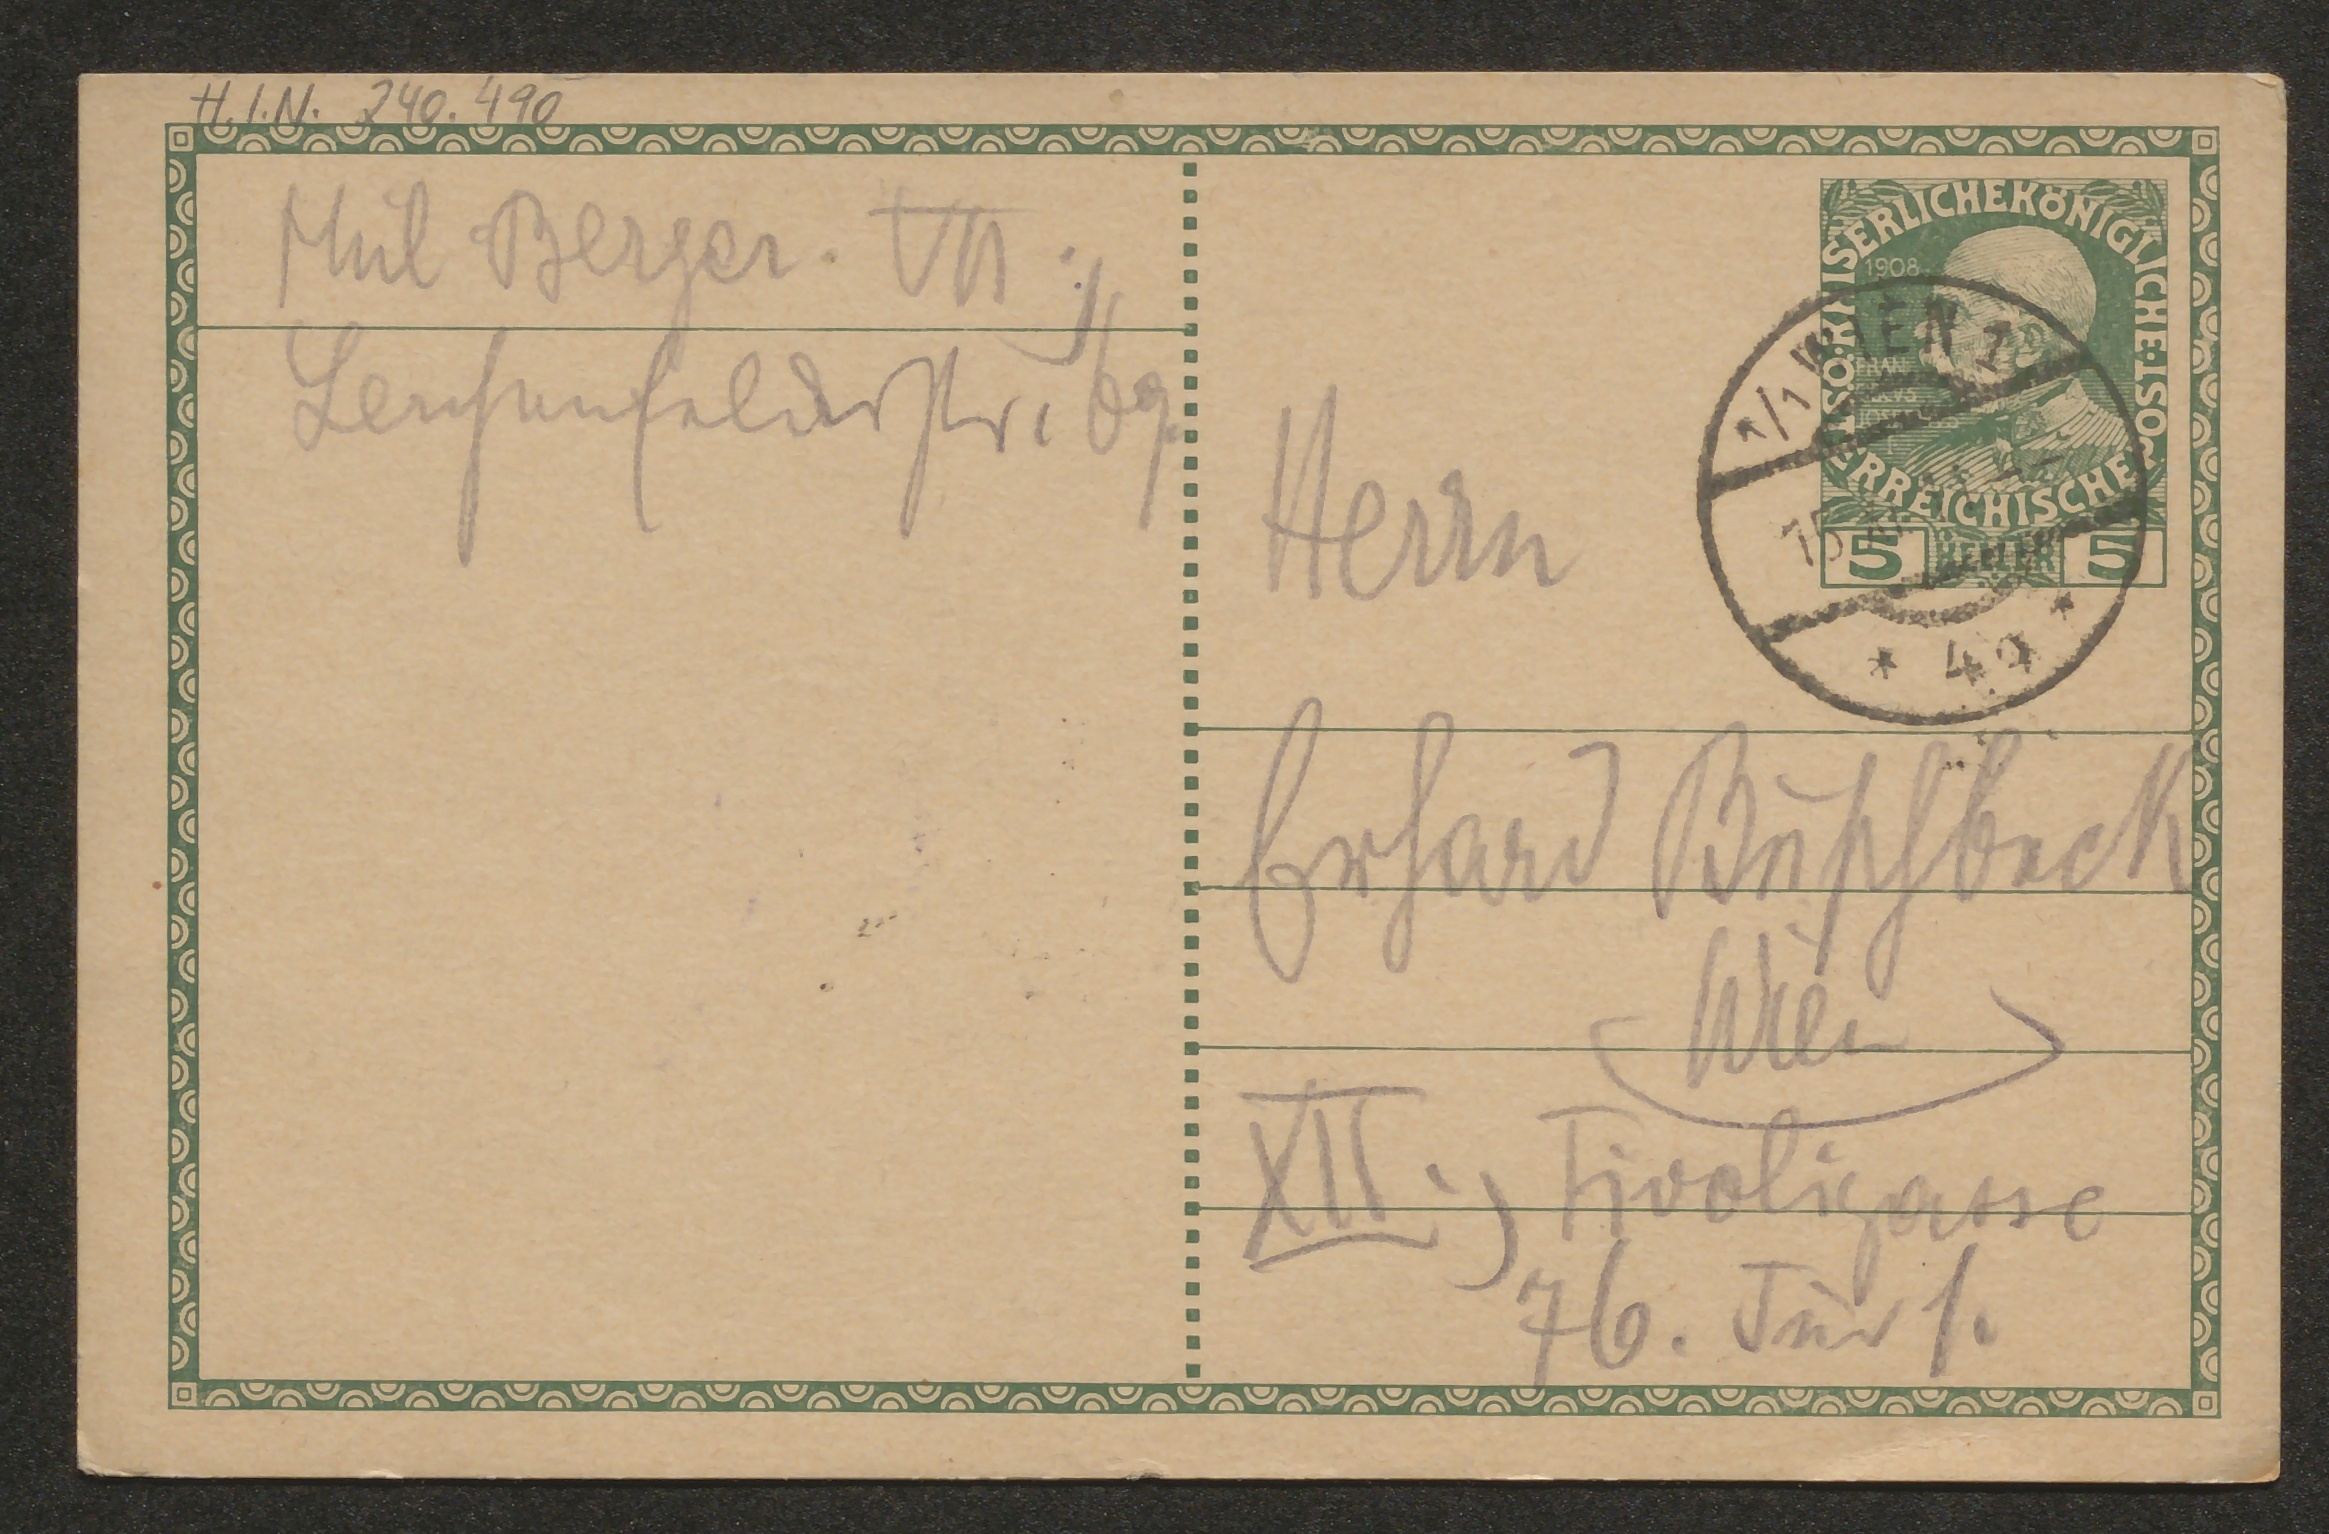 H.I.N. 240.490
Berger. VII.,
Lerchenfelderstr. 69.
KAISERLICHE KÖNIGLICHE ÖSTERREICHISCHE POST
1908
5 HELLER 5
1/1 WIEN 1
15
* 4q *
Herrn
Erhard Buschbeck
Wien
XII., Tivoligasse
76. Tür 1.